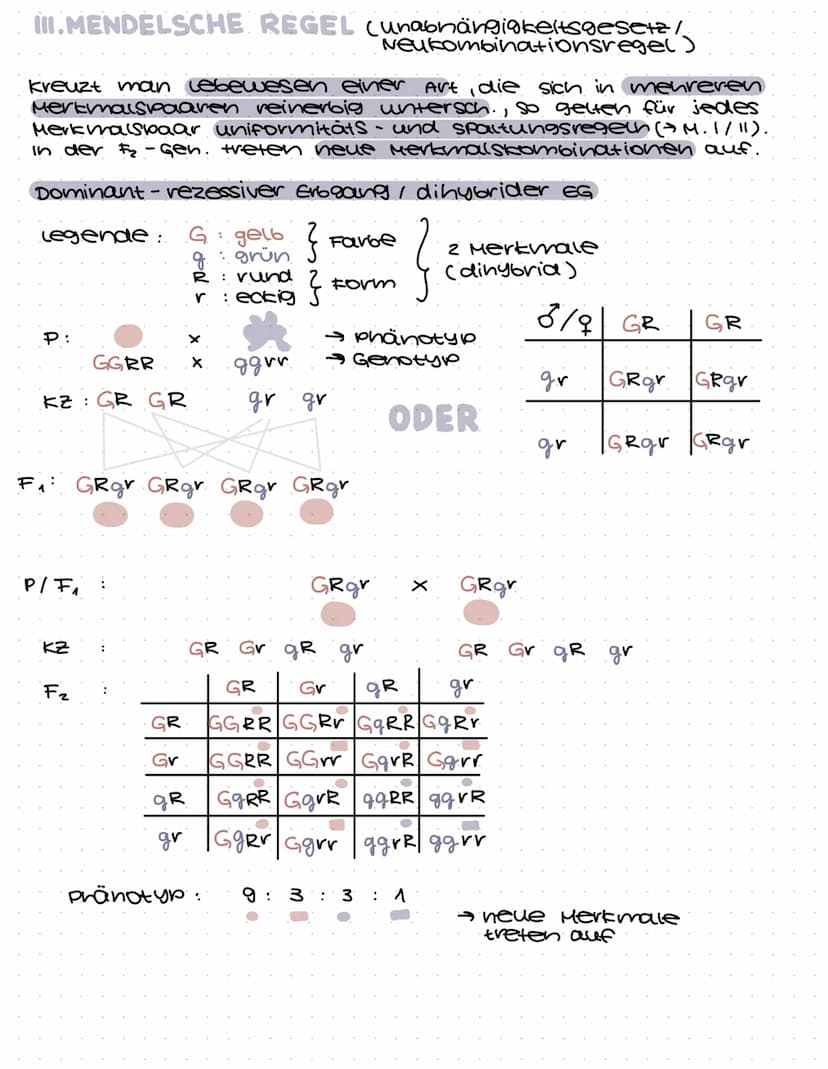 III. MENDELSCHE REGEL (Unabhängigkeitsgesetz/
Neukombinationsregel)
Kreuzt man Lebewesen einer Art, die sich in mehreren
Merkmalspaaren reinerbig untersch., so gelten für jedes
Merkmalspaar Uniformitäts- und Spaltungsregeln (→ M. I/II).
In der F₂-Gen. treten neue Merkmalskombinationen auf.
Dominant-rezessiver Erbgang / dihybrider EG
Legende: G : gelb } Farbe
g : grün
R : rund } Form
r : eckig
2 Merkmale
(dihybrid)
P: x → Phänotyp
GGRR x ggrr → Genotyp
KZ : GR GR gr gr
ODER
♂/♀ GR GR
gr GRgr GRgr
gr GRgr GRgr
F₁: GRgr GRgr GRgr GRgr
P/F₁ : GRgr x GRgr
KZ : GR Gr gR gr GR Gr gR gr
F₂ : GR Gr gR gr
GR GGRR GGRr GgRR GgRr
Gr GGRR GGrr GgrR Ggrr
gR GgRR GgrR ggRR ggrR
gr GgRr Ggrr ggrR ggrr
Phänotyp : 9 : 3 : 3 : 1
→ neue Merkmale
treten auf